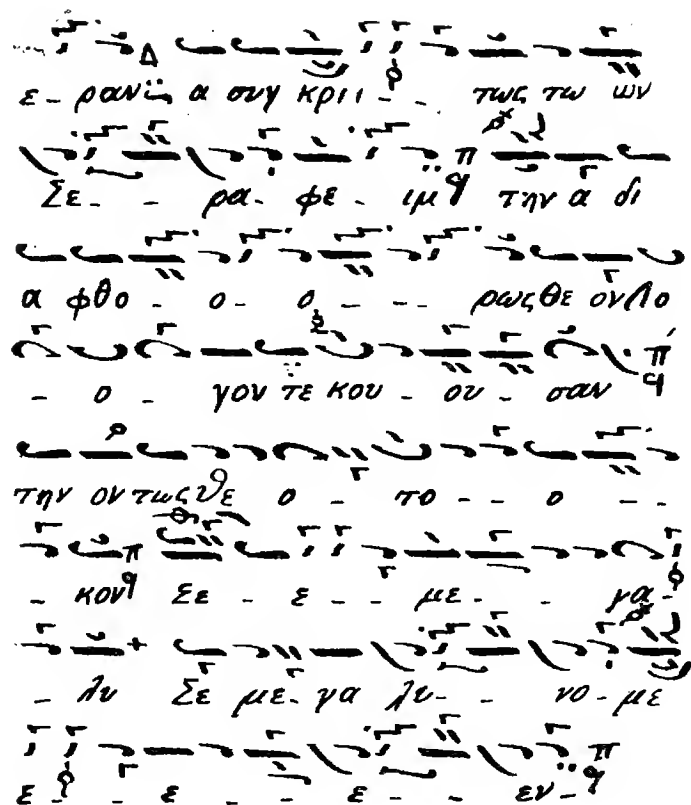 ε - ραν α συγ κρι ι - - τως τω ων
Σε - - ρα - φε - ιμ την α δι
α φθο - ο - ο - - - ρως θε ον Λο
- ο - γον τε κου - ου - σαν
την οντως θε ο - το - - ο - -
- κον Σε - ε - - με - - γα -
- λυ Σε με - γα λυ - - νο - με
ε - - ε - - ε - - εν